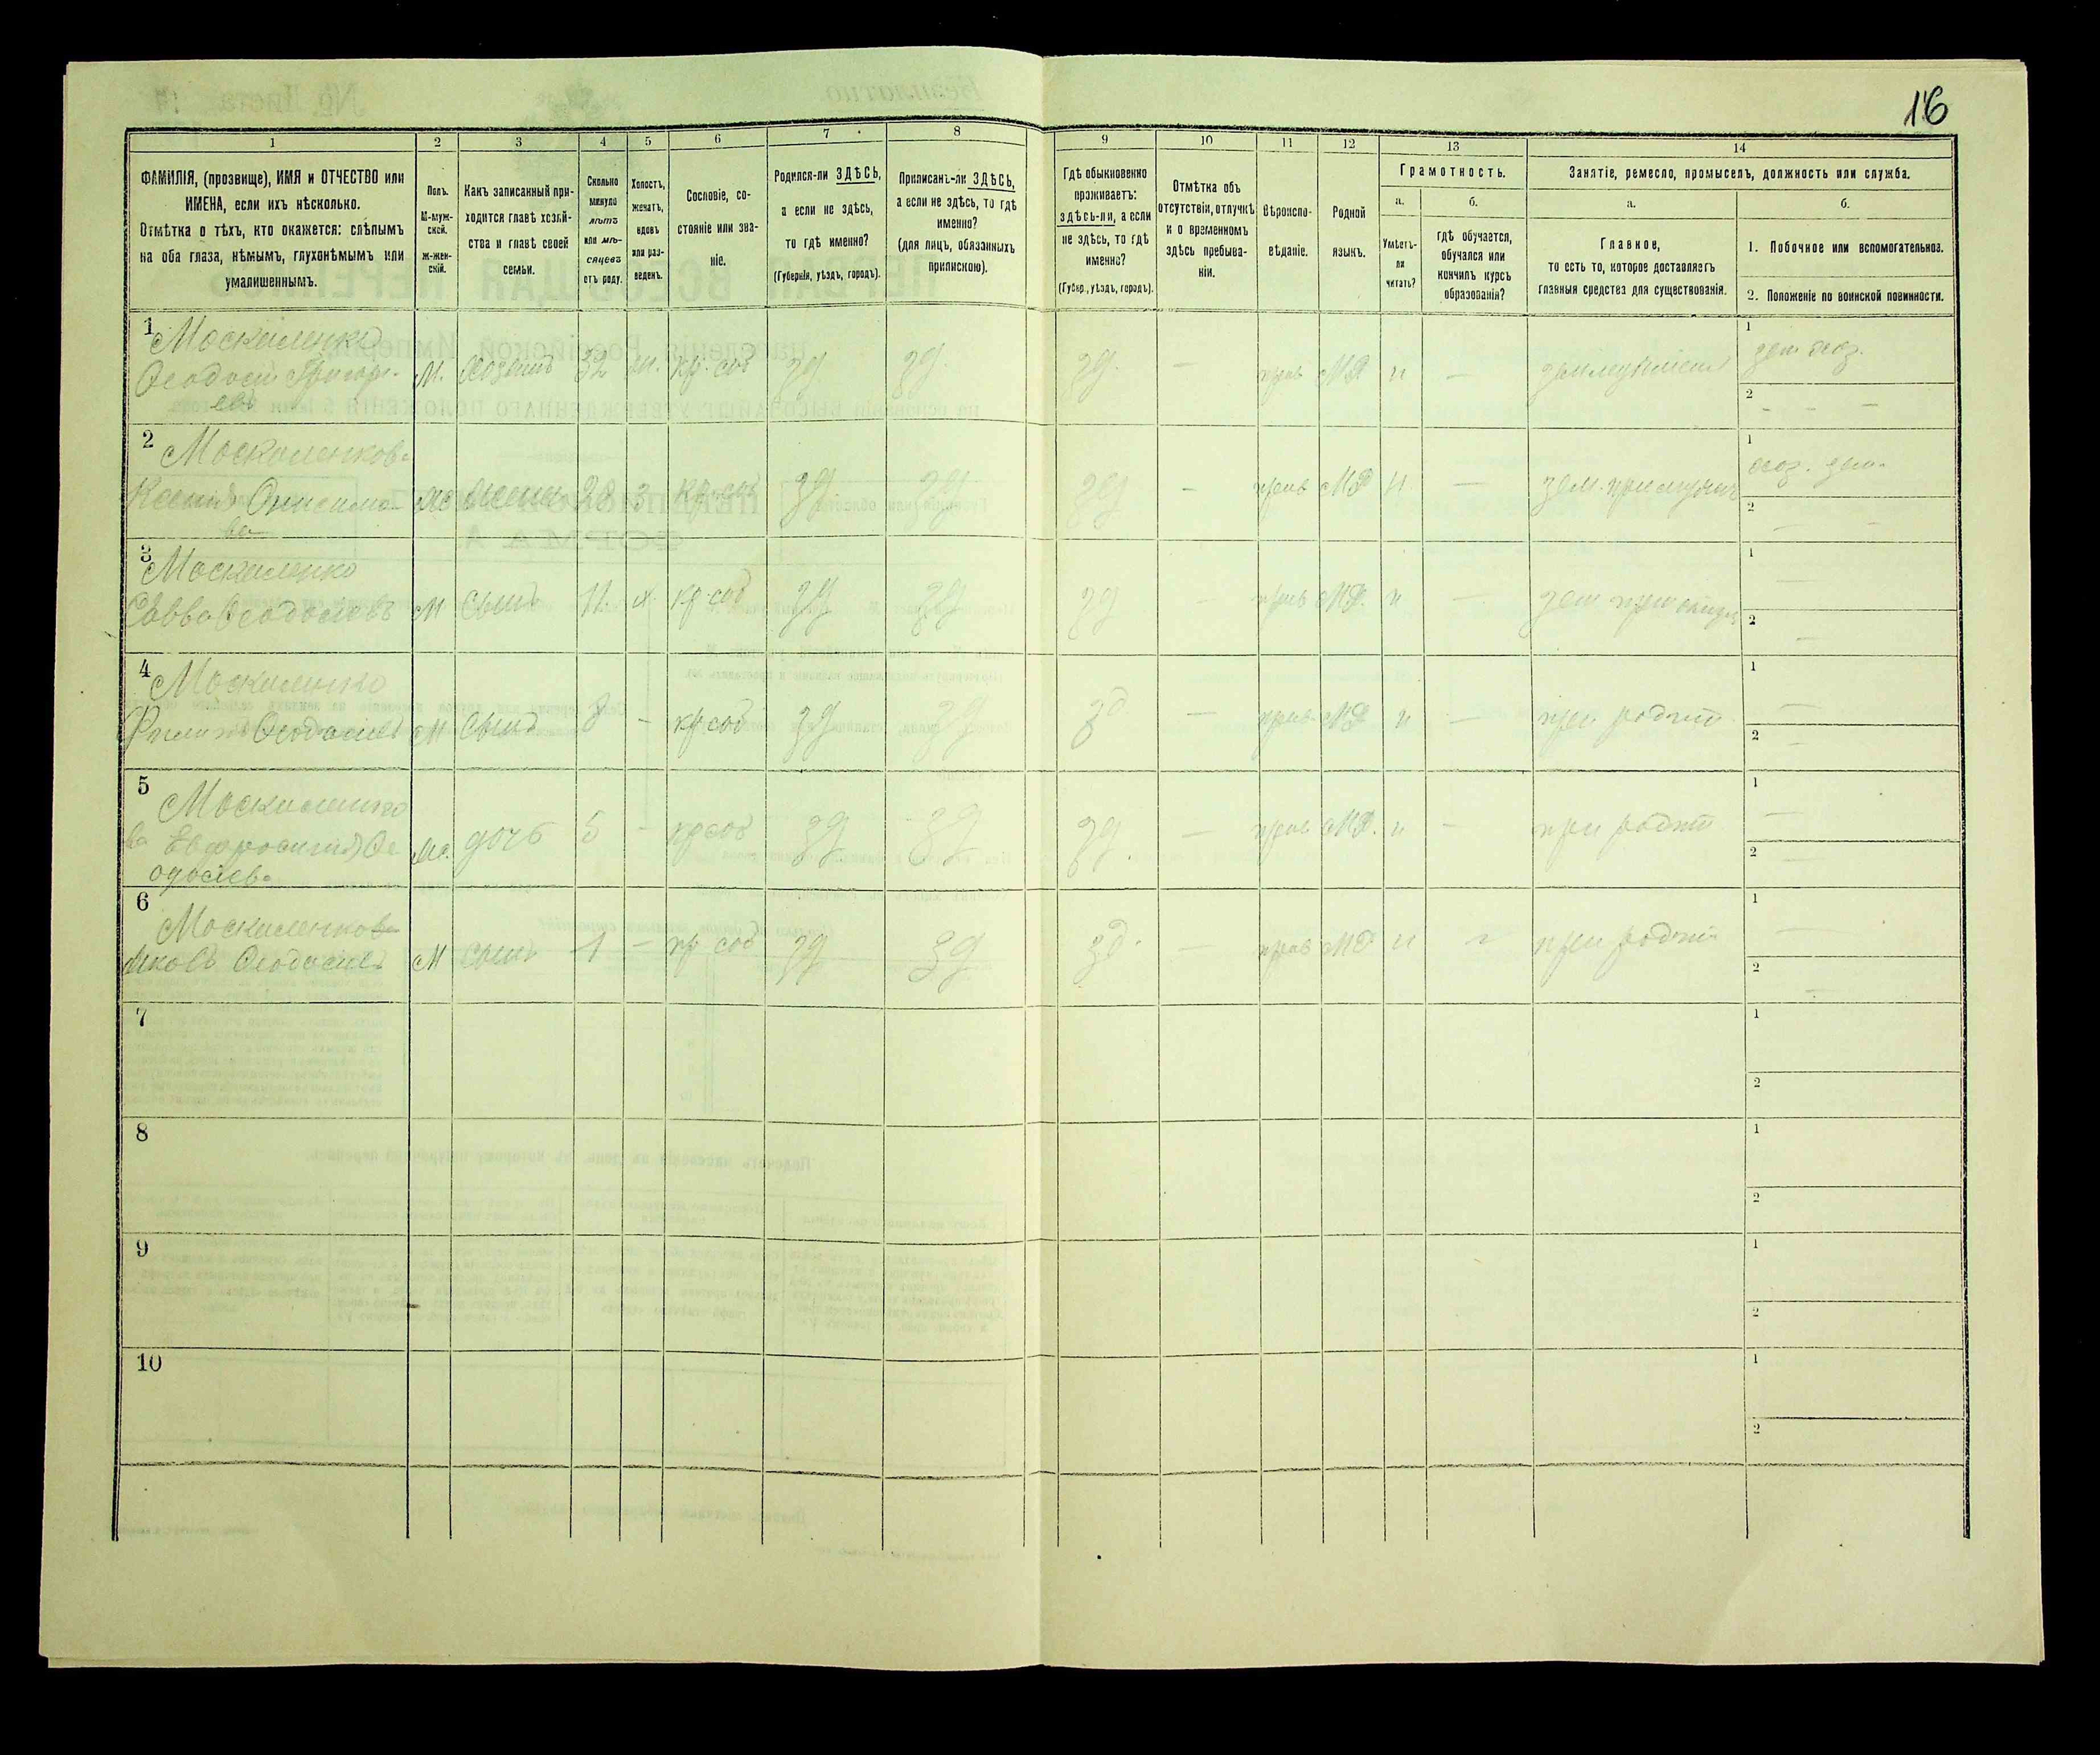 16
1
2
3
4
5
6
7
8
9
10
11
12
13
14
ФАМИЛІЯ, (прозвище), ИМЯ и ОТЧЕСТВО или
ИМЕНА, если ихъ нѣсколько.
Отмѣтка о тѣхъ, кто окажется: слѣпымъ
на оба глаза, нѣмымъ, глухонѣмымъ или
умалишеннымъ.
Полъ.
М-муж-
ской.
Ж-жен-
скій.
Какъ записанный при-
ходится главѣ хозяй-
ства и главѣ своей
семьи.
Сколько
минуло
лѣтъ
или мѣ-
сяцевъ
отъ роду.
Холостъ,
женатъ,
вдовъ
или раз-
веденъ.
Сословіе, со-
стояніе или зва-
ніе.
Родился-ли ЗДѢСЬ,
а если не здѣсь,
то гдѣ именно?
(Губернія, уѣздъ, городъ).
Приписанъ-ли ЗДѢСЬ,
а если не здѣсь, то гдѣ
именно?
(для лицъ, обязанныхъ
припискою).
Гдѣ обыкновенно
проживаетъ:
здѣсь-ли, а если
не здѣсь, то гдѣ
именно?
(Губер., уѣздъ, городъ).
Отмѣтка объ
отсутствіи, отлучкѣ
и о временномъ
здѣсь пребыва-
ніи.
Вѣроиспо-
вѣданіе.
Родной
языкъ.
Грамотность.
а.
б.
Умѣетъ-
ли
читать?
гдѣ обучается,
обучался или
кончилъ курсъ
образованія?
Занятіе, ремесло, промыселъ, должность или служба.
а.
б.
Главное,
то есть то, которое доставляетъ
главныя средства для существованія.
1. Побочное или вспомогательное.
2. Положеніе по воинской повинности.
1 Москаленко
Ѳеодосій Григорь-
евъ
М. Хозяинъ 32 кр. соб зд зд. зд. — прав МР н —
1
2 — — —
2 Москаленкова
Ксенія Онисимо-
ва
жена 28 з кр. соб зд зд зд — прав МР н —
1 хоз. зем.
2 — —
3 Москаленко
Савва Ѳеодосіевъ М сынъ 11 х. кр. соб зд зд зд — прав МР. н —
1 —
2 —
4 Москаленко
Филипъ Ѳеодосіевъ М сынъ 8 — кр соб зд зд зд — прав МР н — при родит
1 —
2 —
5 Москаленко
ва Евфросинія Ѳе
одосіева
дочь 5 — кр соб зд зд зд. — прав МР. н — при родит
1 —
2 —
6 Москаленков
Яковъ Ѳеодосіевъ М сынъ 1 — кр соб зд зд зд. — прав МР н при родит
1 —
2 —
7
1
2
8
1
2
9
1
2
10
1
2